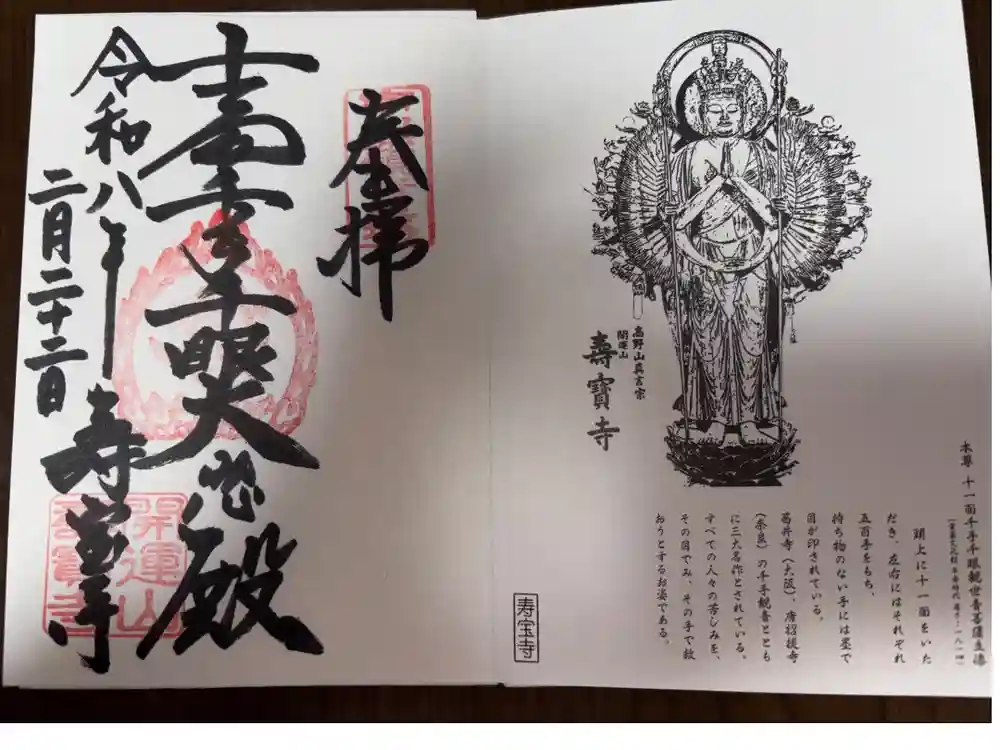 奉拝
十一面千手千眼大悲殿
令和八年
二月二十二日
寿宝寺
開運山
高野山真言宗
開運山
壽寶寺
本尊 十一面千手千眼観世音菩薩立像
頭上に十一面をいた
だき、左右にはそれぞれ
五百手をもち、
持ち物のない手には墨で
目が印されている。
葛井寺(大阪)、唐招提寺
(奈良)の千手観音ととも
に三大名作とされている。
すべての人々の苦しみを、
その目でみ、その手で救
おうとするお姿である。
寿宝寺